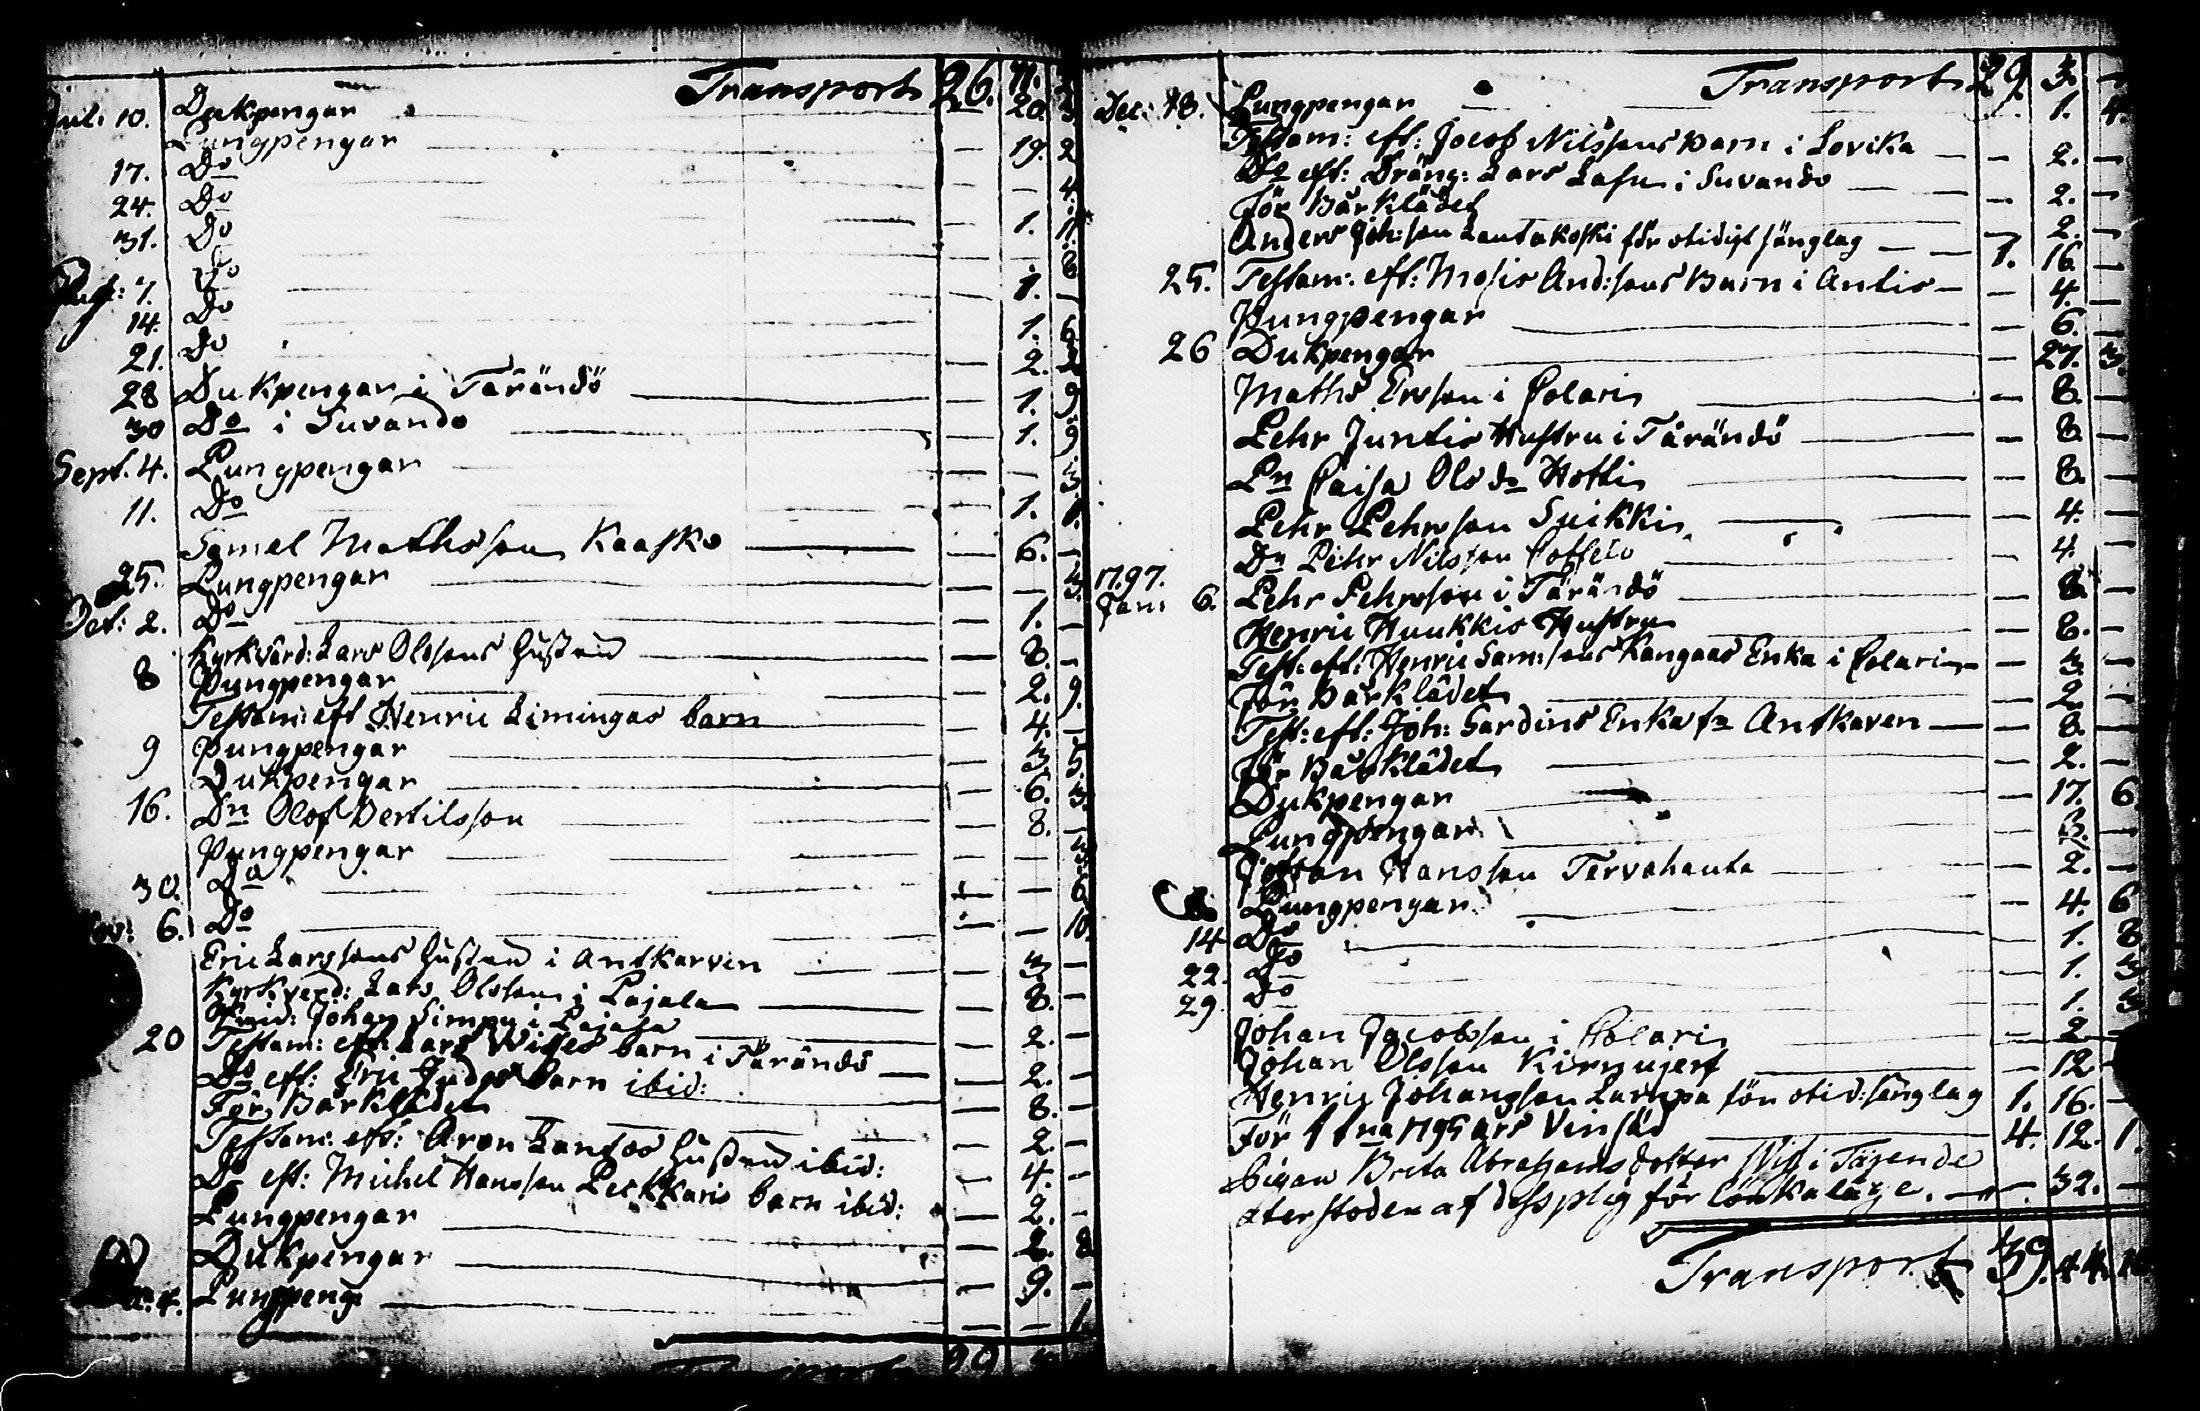 Transport 26. 11.
Jul: 10. Dukpengar — 20. 3.
Pungpengar — 19. 2
17. Do — — 4.
24. Do — 1. 11.
31. Do — — 8
Aug: 7. Do — 1. —
14. Do — 1. 6.
21. Do — 2. 2
28 Dukpengar i Tärändö — 1. 9
30 Do i Suvando — 1. 9
Sept. 4. Pungpengar — — 3.
11. Do — 1. 1.
Samel Mathsson Kaasko — 6. —
25. Pungpengar — — 3.
Oct: 2. Do — 1. —
Kyrkvärd: Lars Olssons hustru — 8. —
8 Pungpengar — 2. 9.
Testam: eft Henric Limingas barn — 4. —
9 Pungpengar — 3. 5.
Dukpengar — 6. 3.
16. Dn Olof Bertilsson — 8. —
Pungpengar — — 3.
30. Do — — 6.
Nov: 6. Do — — 10.
Eric Larssons hustru i Antkarven — 3. —
Kyrkverd: Lars Olsson i Pajala — 8. —
Johan Simpu i Pajala — 2. —
20 Testam: eft: Lars Wiges barn i Tärändö — 2. —
Do eft: Eric barn ibid: — 8. —
För Barklädet — 2. —
Testam: eft: Aron Lantos hustru ibid: — 4. —
Do eft: Michel Hansson Peckkaris barn ibid: — 2. —
Pungpengar — 2. 8
Dukpengar — 9. —
4. Pungpeng — — 1.
Transport 29
Transport 29 3. —
Dec: 18. Pungpengar — 1. 4.
Testam: eft: Jocob Nilssons barn i Lovika — 2. —
Do eft: Dräng: Lars Lasu i Suvando — 2. —
För Barklädet — 2. —
Anders Joh:son Lautakoski för otidigt sänglag — 1. 16. —
25. Testam: eft: Mosis And:sons Barn i Antis — 4. —
Pungpengar — 6. —
26 Dukpengar — 27. 3.
Maths Ersson i Kolari — 8. —
Pehr Juntis Hustru i Tärändö — 8. —
Pn Caisa Olsdr Hotti — 8. —
Pehr Pehrsson Suikki — 4. —
Dn Pehr Nilsson — 4. —
1797.
Jan: 6. Pehr Pehrsson i Tärändö — 8. —
Henric Huukkis Hustru — 8. —
Test: eft: Henric Sam:sons Kangaas Enka i Kolari — 3. —
För Barklädet — 2. —
Test: eft: Joh: Sardins Enka fr Antkaven — 8. —
För Barklädet — 2. —
Dukpengar — 17. 6
Pungpengar — 3. —
Johan Hansson Tervahauta — 2. —
Pungpengar — 4. 6
14 Do — 1. 8.
22. Do — 1. 3
29. Do — 1. 3
Johan Jacobsson i Kolari — 2 —
Johan Olsson Kirnujerf — 12 —
Henric Johansson Lampa för otid: sänglag 1. 16. —
För 1 kna 1795 års Vinsäd 4. 12. 1.
Pigan Brita Abrahamsdotter i Tärende
återstoden af dess plig för lönkaläge. — 32. —
Transport 39. 44. 10